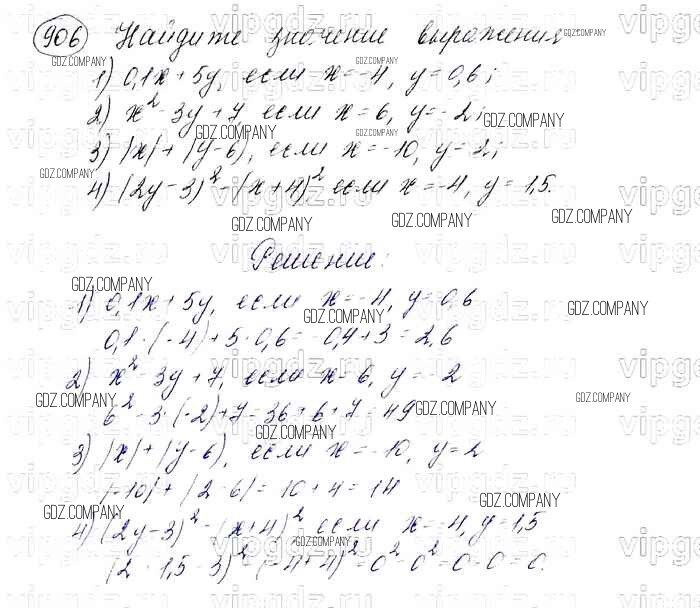 906 Найдите значение выражения:
1) 0,1x + 5y, если x = -4, y = 0,6;
2) x² - 3y + 7, если x = 6, y = -2;
3) |x| + |y - 6|, если x = -10, y = 2;
4) (2y - 3)² - (x + 4)², если x = -4, y = 1,5.
Решение:
1) 0,1x + 5y, если x = -4, y = 0,6
0,1 · (-4) + 5 · 0,6 = -0,4 + 3 = 2,6
2) x² - 3y + 7, если x = 6, y = -2
6² - 3 · (-2) + 7 = 36 + 6 + 7 = 49
3) |x| + |y - 6|, если x = -10, y = 2
|-10| + |2 - 6| = 10 + 4 = 14
4) (2y - 3)² - (x + 4)², если x = -4, y = 1,5
(2 · 1,5 - 3)² - (-4 + 4)² = 0² - 0² = 0 - 0 = 0.
GDZ.COMPANY
vipgdz.ru